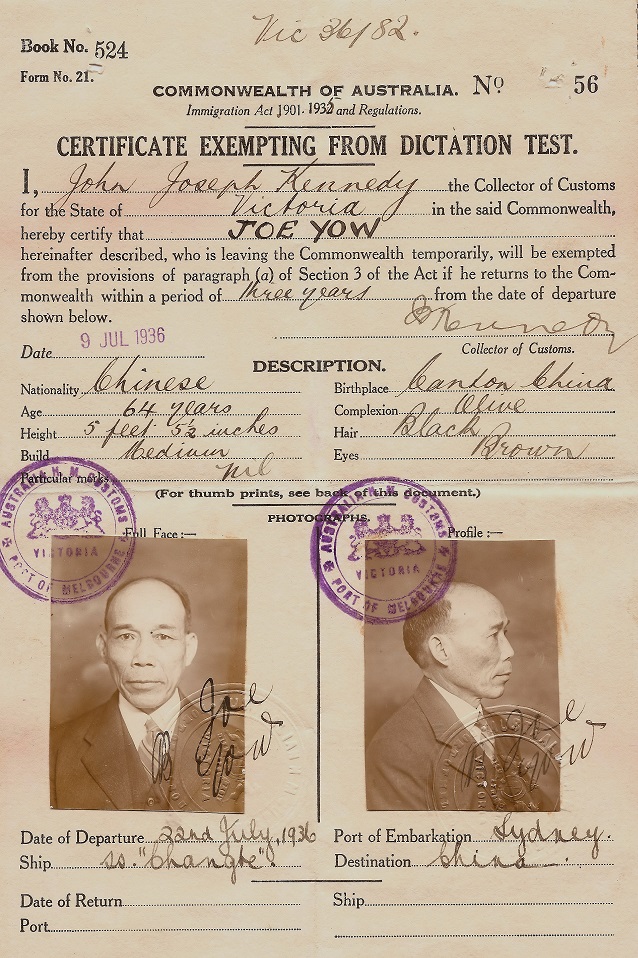 Vic 36/82.
Book No. 524
Form No. 21.
COMMONWEALTH OF AUSTRALIA. No 56
Immigration Act 1901-1935 and Regulations.
CERTIFICATE EXEMPTING FROM DICTATION TEST.
I, John Joseph Kennedy the Collector of Customs
for the State of Victoria in the said Commonwealth,
hereby certify that JOE YOW
hereinafter described, who is leaving the Commonwealth temporarily, will be exempted
from the provisions of paragraph (a) of Section 3 of the Act if he returns to the Com-
monwealth within a period of three years from the date of departure
shown below.
JJKennedy
Date 9 JUL 1936
Collector of Customs.
DESCRIPTION.
Nationality Chinese Birthplace Canton China
Age 64 years Complexion Olive
Height 5 feet 5½ inches Hair Black
Build Medium Eyes Brown
Particular marks nil
(For thumb prints, see back of this document.)
PHOTOGRAPHS.
Full Face :— Profile :—
AUSTRALIA H. M. CUSTOMS
VICTORIA
PORT OF MELBOURNE
AUSTRALIA H. M. CUSTOMS
VICTORIA
PORT OF MELBOURNE
Joe
Yow
Joe
Yow
Date of Departure 22nd July, 1936 Port of Embarkation Sydney.
Ship ss. "Changte". Destination China.
Date of Return Ship
Port